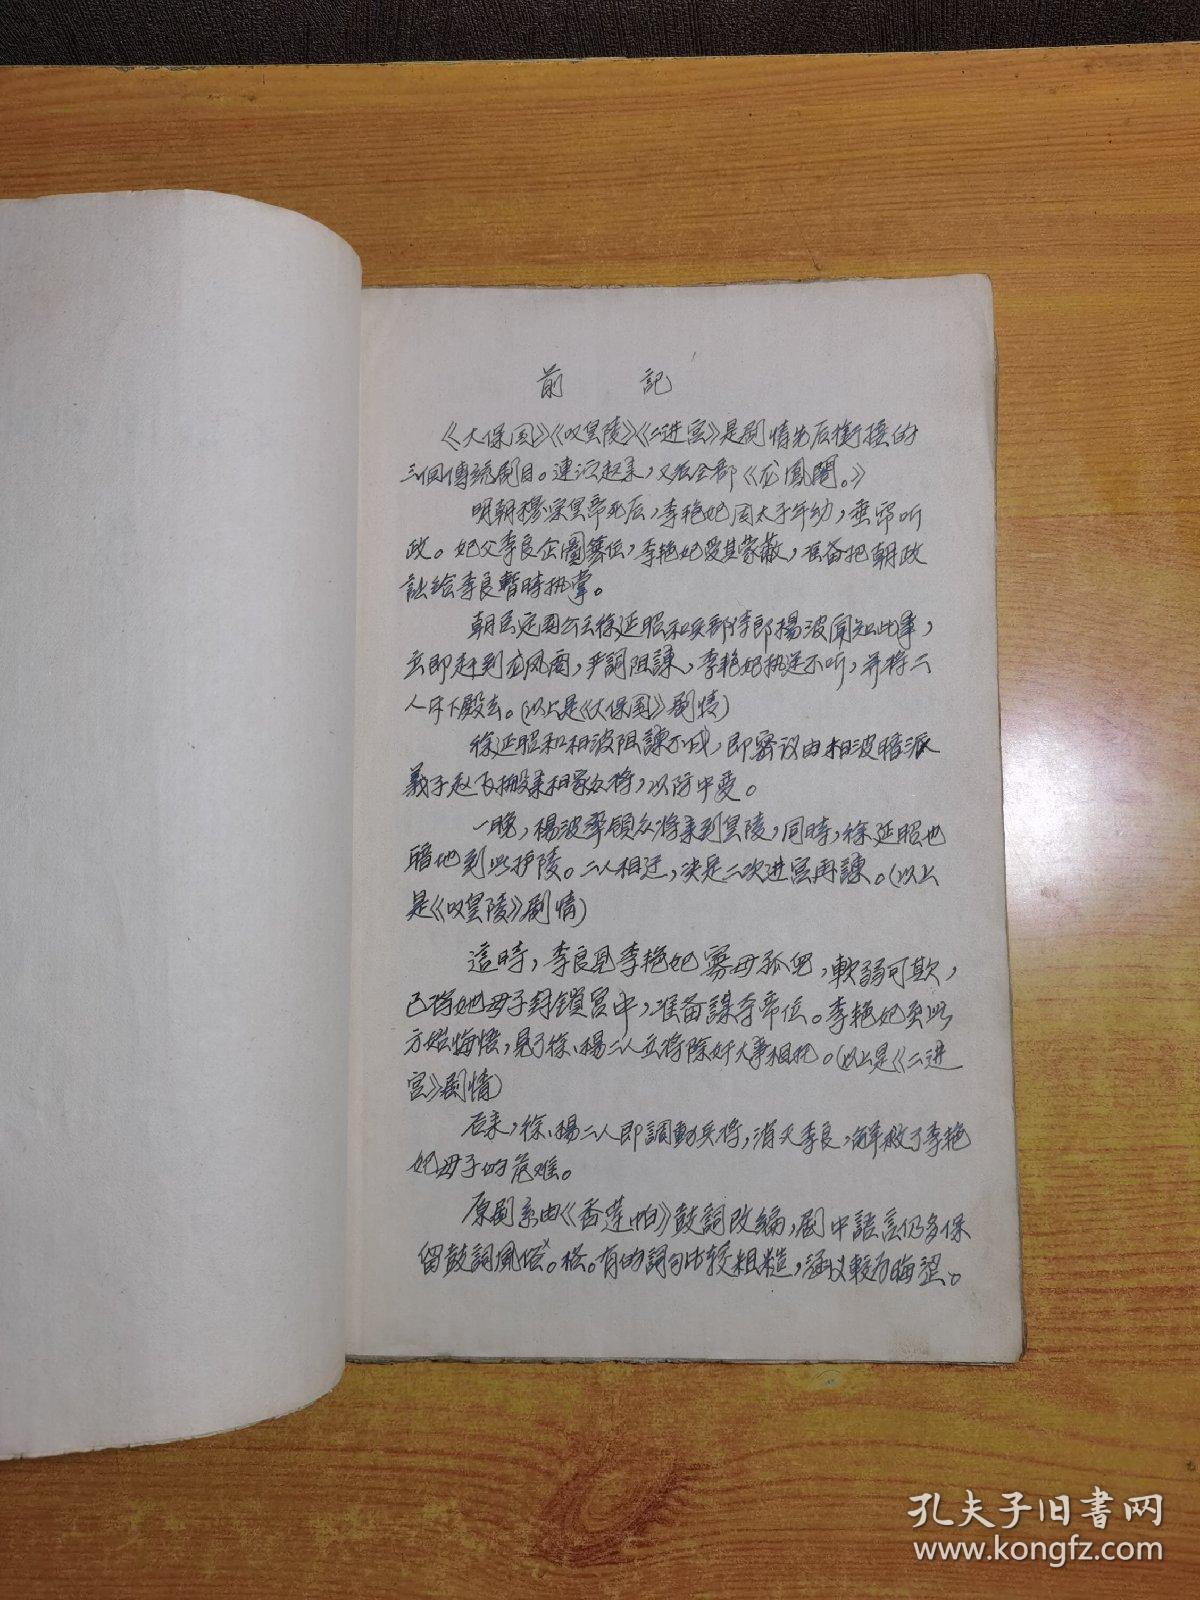 前 記
《大保国》《叹皇陵》《二进宫》是剧情先后衔接的
三個傳統剧目。連演起来，又称全部《龙鳳閣。》
明朝穆宗皇帝死后，李艳妃因太子年幼，垂帘听
政。妃父李良企圖篡位，李艳妃受其蒙蔽，准备把朝政
訟给李良暫時执掌。
朝臣定国公王徐延昭和兵部侍郎楊波聞知此事，
立即赶到龙凤阁，严詞阻諫，李艳妃执迷不听，并将二
人斥下殿去。(以上是《大保国》剧情)
徐延昭和相波阻諫不成，即密议由相波暗派
義子赵飞搬来相家众将，以防中变。
一晚，楊波率領众将来到皇陵，同時，徐延昭也
暗地到此护陵。二人相迂，决定二次进宫再諫。(以上
是《叹皇陵》剧情)
這時，李良見李艳妃寡母孤児，軟弱可欺，
已将她母子封鎖宫中，准备謀夺帝位。李艳妃至此
方始悔悟，見了徐、楊二人立将除奸大事相托。(以上是《二进
宫》剧情)
后来，徐、楊二人即調動兵将，消灭李良，解救了李艳
妃母子的危难。
原剧系由《香莲帕》鼓詞改編，剧中語言仍多保
留鼓詞風俗。格。有的詞句比较粗糙，涵义較为晦涩。
孔夫子旧書网
www.kongfz.com